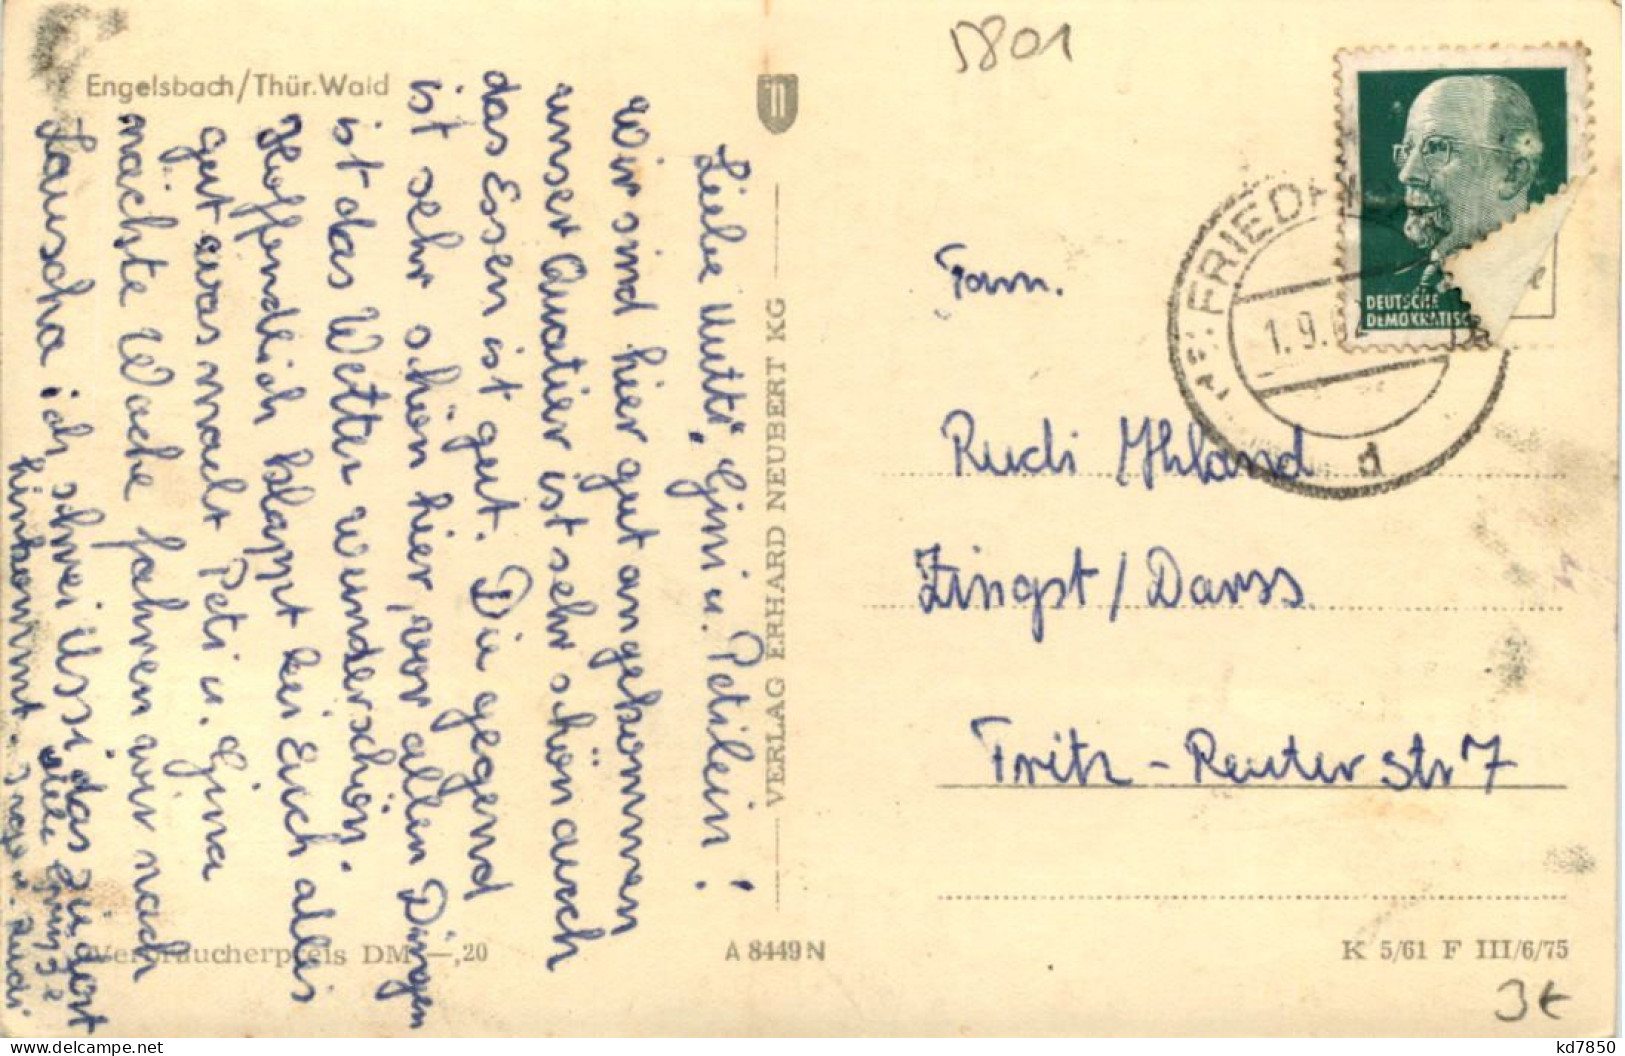 Engelsbach/Thür. Wald
Liebe "Mutti", Gini u. Petilein!
Wir sind hier gut angekommen
unser Quatier ist sehr schön auch
das Essen ist gut. Die gegend
ist sehr schön hier, vor allen Dingen
ist das Wetter wunderschön.
Hoffendlich klappt bei Euch alles
gut was macht Peti u. Gina
nächste Woche fahren wir nach
Lauscha ich schrei Ussi das
hinkommt. viele Grüsse
Inge u. Rudi
VERLAG ERHARD NEUBERT KG
Verbraucherpreis DM —,20
A 8449 N
5801
DEUTSCHE
DEMOKRATISC
FRIED
1.9.6
d
Fam.
Rudi Ihland
Zingst/Darss.
Fritz-Reuter str 7
K 5/61 F III/6/75
3€
kd7850